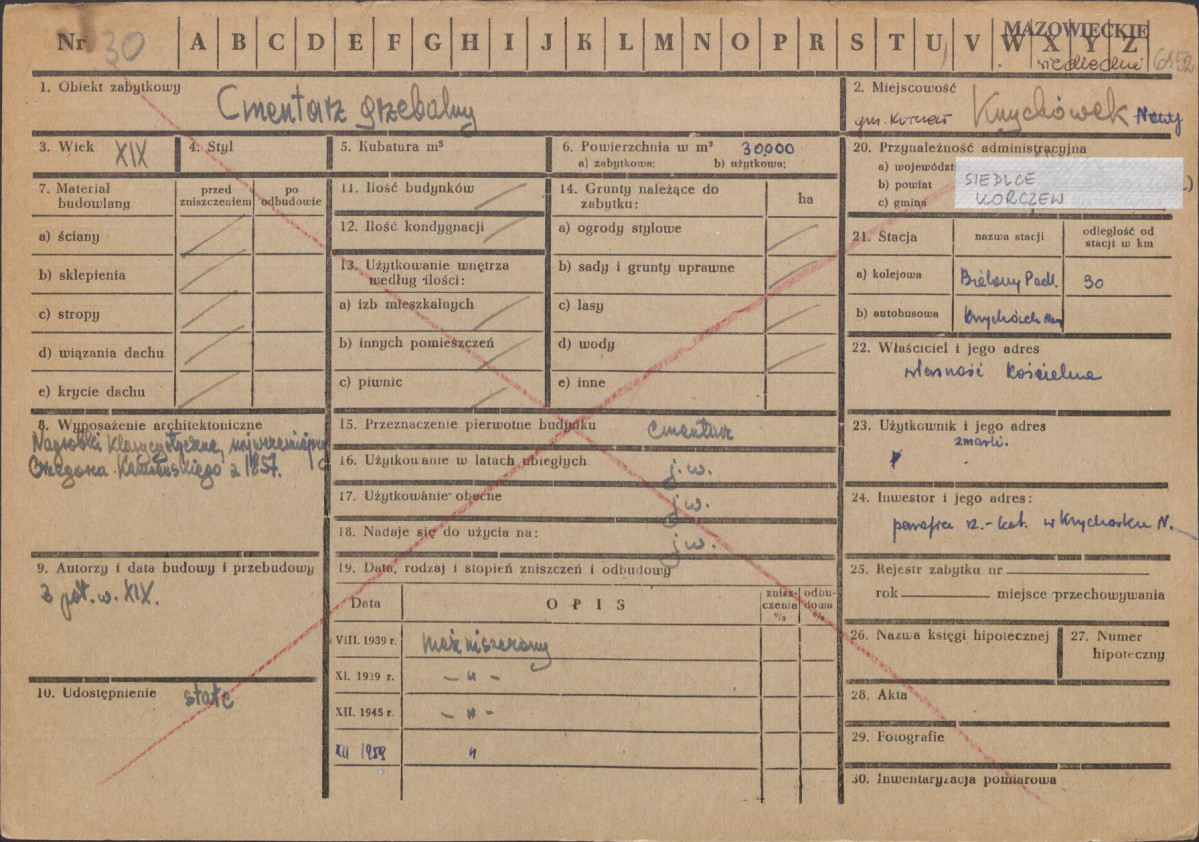 Nr 30 A B C D E F G H I J K L M N O P R S T U V W X Y Z
MAZOWIECKIE
siedleckie 6152
1. Obiekt zabytkowy
Cmentarz grzebalny
2. Miejscowość
gm. Korczew Knychówek Nowy
3. Wiek XIX
4. Styl
5. Kubatura m³
6. Powierzchnia w m² 30.000
a) zabytkowa; b) użytkowa;
7. Materiał budowlany
przed zniszczeniem
po odbudowie
a) ściany
b) sklepienia
c) stropy
d) wiązania dachu
e) krycie dachu
8. Wyposażenie architektoniczne
Nagrobki klasycystyczne, najwcześniejszy
Grzegorza Kamieńskiego z 1857.
9. Autorzy i data budowy i przebudowy
2 poł. w. XIX.
10. Udostępnienie stałe
11. Ilość budynków
12. Ilość kondygnacji
13. Użytkowanie wnętrza
według ilości:
a) izb mieszkalnych
b) innych pomieszczeń
c) piwnic
14. Grunty należące do
zabytku:
ha
a) ogrody stylowe
b) sady i grunty uprawne
c) lasy
d) wody
e) inne
15. Przeznaczenie pierwotne budynku cmentarz
16. Użytkowanie w latach ubiegłych j.w.
17. Użytkowanie obecne j.w.
18. Nadaje się do użycia na: j.w.
19. Data, rodzaj i stopień zniszczeń i odbudowy
Data
OPIS
znisz-
czenia
%
odbu-
dowa
%
VIII. 1939 r. nie zniszczony
XI. 1939 r. – " –
XII. 1945 r. – " –
XII 1959 "
20. Przynależność administracyjna
a) województ
b) powiat
c) gmina
SIEDLCE
KORCZEW
21. Stacja
nazwa stacji
odległość od
stacji w km
a) kolejowa Bielany Podl. 30
b) autobusowa Knychówek Now
22. Właściciel i jego adres
własność kościelna
23. Użytkownik i jego adres
zmarli.
24. Inwestor i jego adres:
parafia rz.-kat. w Knychówku N.
25. Rejestr zabytku nr
rok miejsce przechowywania
26. Nazwa księgi hipotecznej
27. Numer
hipoteczny
28. Akta
29. Fotografie
30. Inwentaryzacja pomiarowa